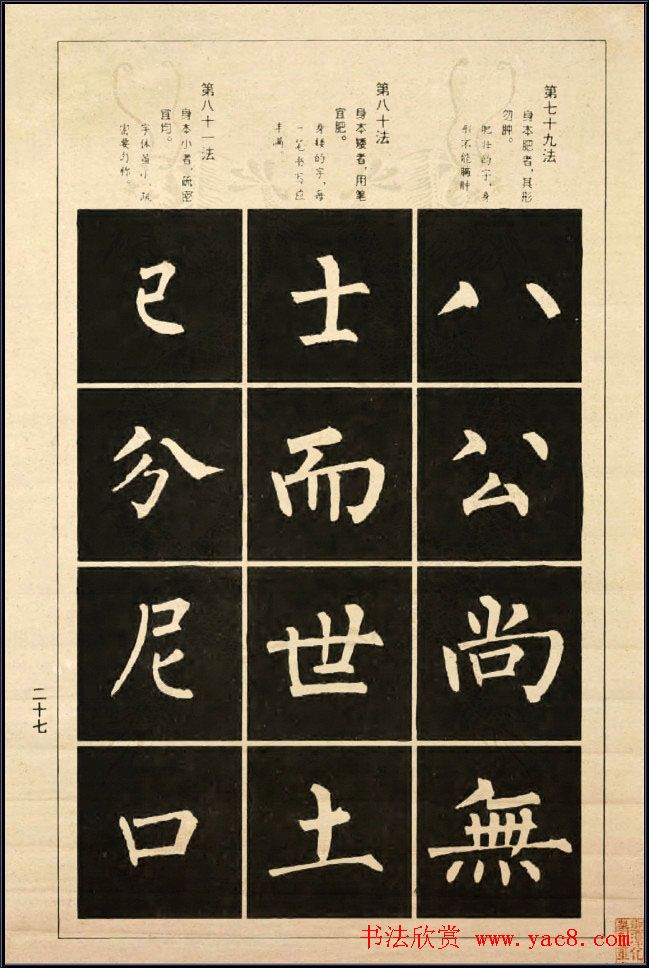 第七十九法
身本肥者，其形
勿肿。
肥壮的字，身
形不能臃肿
八
公
尚
無
第八十法
身本矮者，用笔
宜肥。
身矮的字，每
一笔书写应
丰满
士
而
世
土
第八十一法
身本小者，疏密
宜均。
字体虽小，疏
密要匀称。
已
分
尼
口
二十七
书法欣赏 www.yac8.com